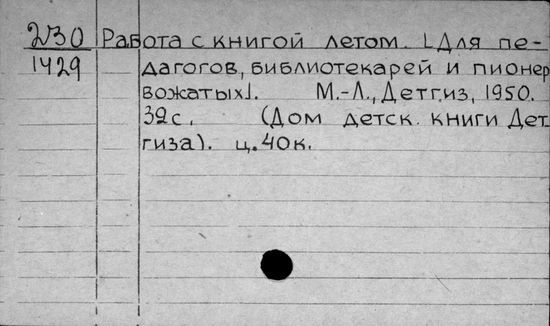 230 Работа с книгой летом. [Для пе-
1429 дагогов, библиотекарей и пионер
вожатых]. М.-Л., Детгиз, 1950.
39с. (Дом детск. книги Дет
гиза). ц. 40к.